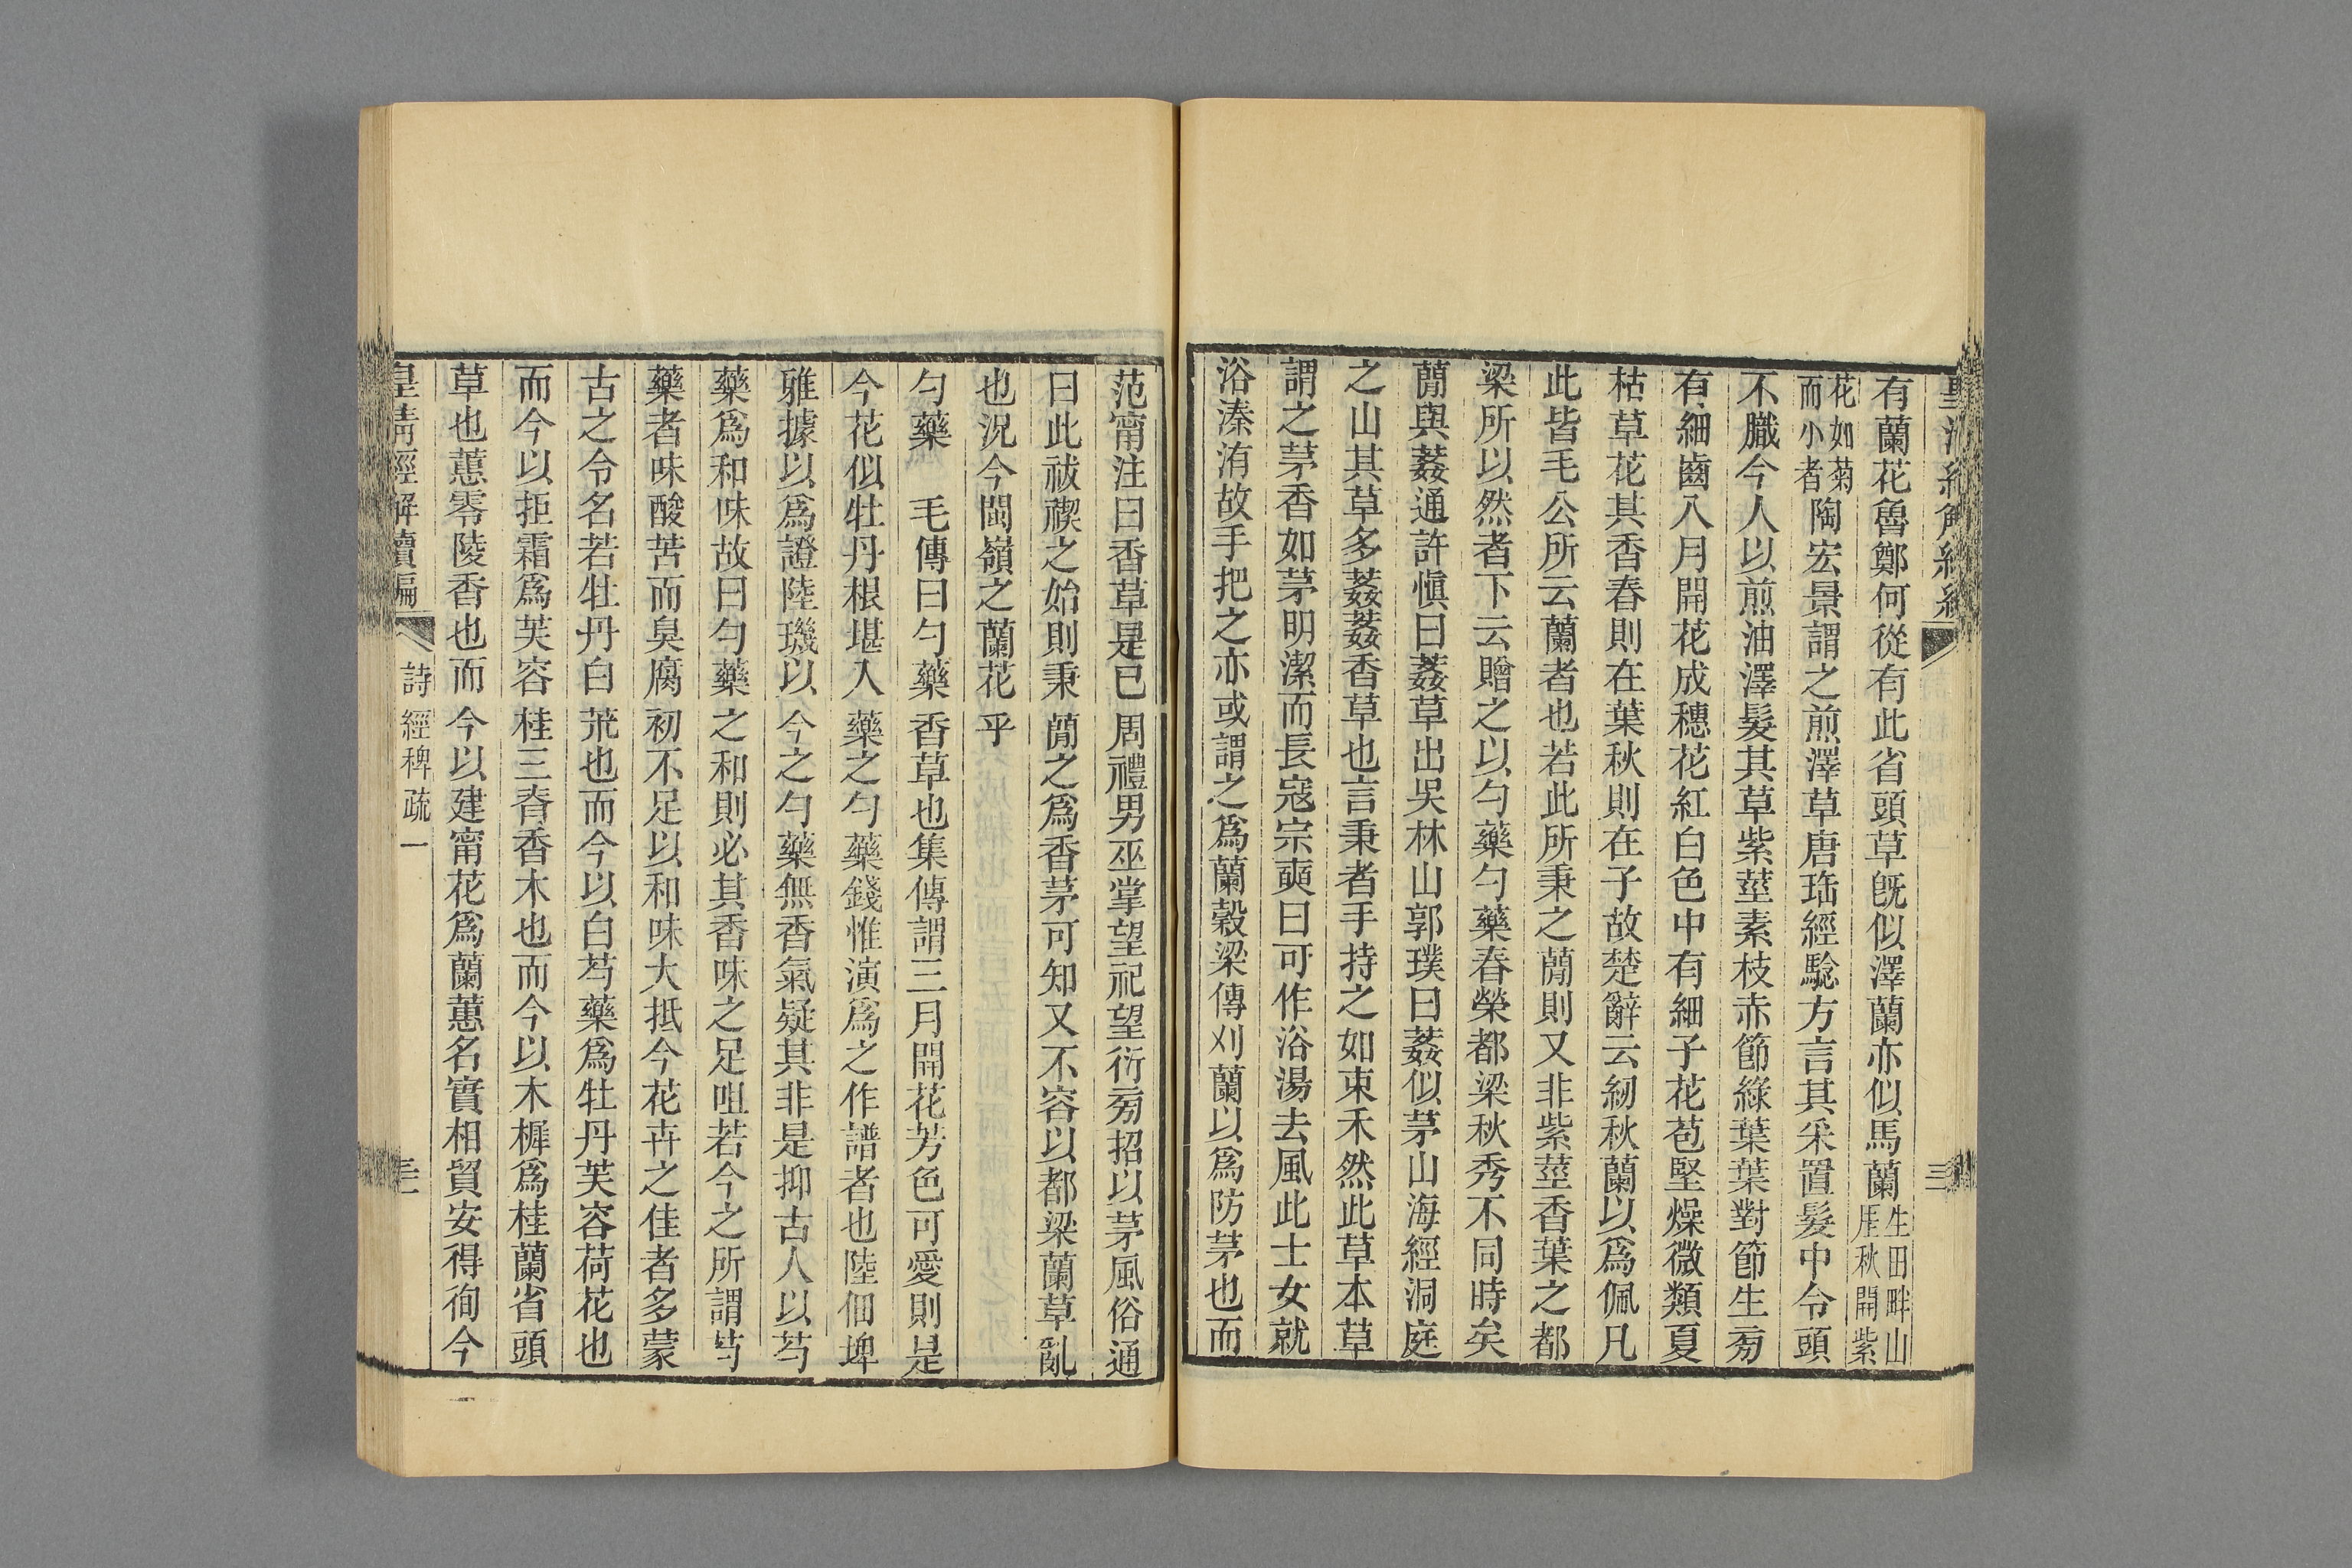 有蘭花魯鄭何從有此省頭草旣似澤蘭亦似馬蘭生田畔山厓秋開紫
花如菊而小者陶宏景謂之煎澤草唐瑶經驗方言其采置髮中令頭
不膱今人以煎油澤髮其草紫莖素枝赤節綠葉葉對節生旁
有細齒八月開花成穗花紅白色中有細子花苞堅燥微類夏
枯草花其香春則在葉秋則在子故楚辭云紉秋蘭以爲佩凡
此皆毛公所云蘭者也若此所秉之蕑則又非紫莖香葉之都
梁所以然者下云贈之以勺藥勺藥春榮都梁秋秀不同時矣
蕑與葌通許愼曰葌草出吳林山郭璞曰葌似茅山海經洞庭
之山其草多葌葌香草也言秉者手持之如束禾然此草本草
謂之茅香如茅明潔而長寇宗奭曰可作浴湯去風此士女就
浴溱洧故手把之亦或謂之爲蘭穀梁傳刈蘭以爲防茅也而
范甯注曰香草是已周禮男巫掌望祀望衍旁招以茅風俗通
曰此祓禊之始則秉蕑之爲香茅可知又不容以都梁蘭草亂
也況今閩嶺之蘭花乎
勺藥　毛傳曰勺藥香草也集傳謂三月開花芳色可愛則是
今花似牡丹根堪入藥之勺藥錢惟演爲之作譜者也陸佃埤
雅據以爲證陸璣以今之勺藥無香氣疑其非是抑古人以芍
藥爲和味故曰勺藥之和則必其香味之足咀若今之所謂芍
藥者味酸苦而臭腐初不足以和味大抵今花卉之佳者多蒙
古之令名若牡丹白茺也而今以白芍藥爲牡丹芙容荷花也
而今以拒霜爲芙容桂三脊香木也而今以木樨爲桂蘭省頭
草也蕙零陵香也而今以建甯花爲蘭蕙名實相貿安得徇今
皇淸經解續編
詩經稗疏一